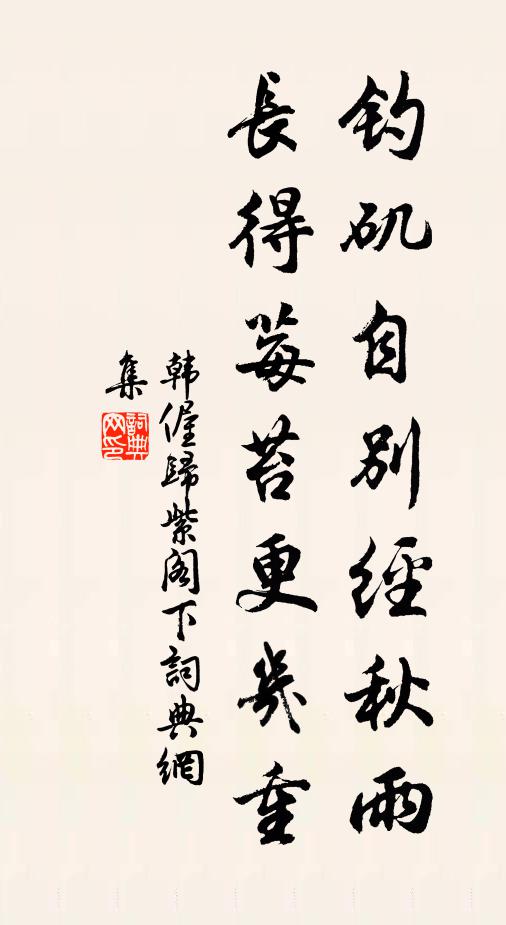 钓矶自别經秋雨
長得莓苔更幾重
韩偓歸紫阁下詞典網
集
詞典
网印